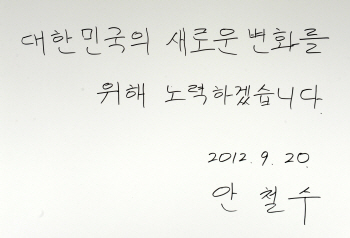 대한민국의 새로운 변화를
위해 노력하겠습니다
2012. 9. 20.
안 철수